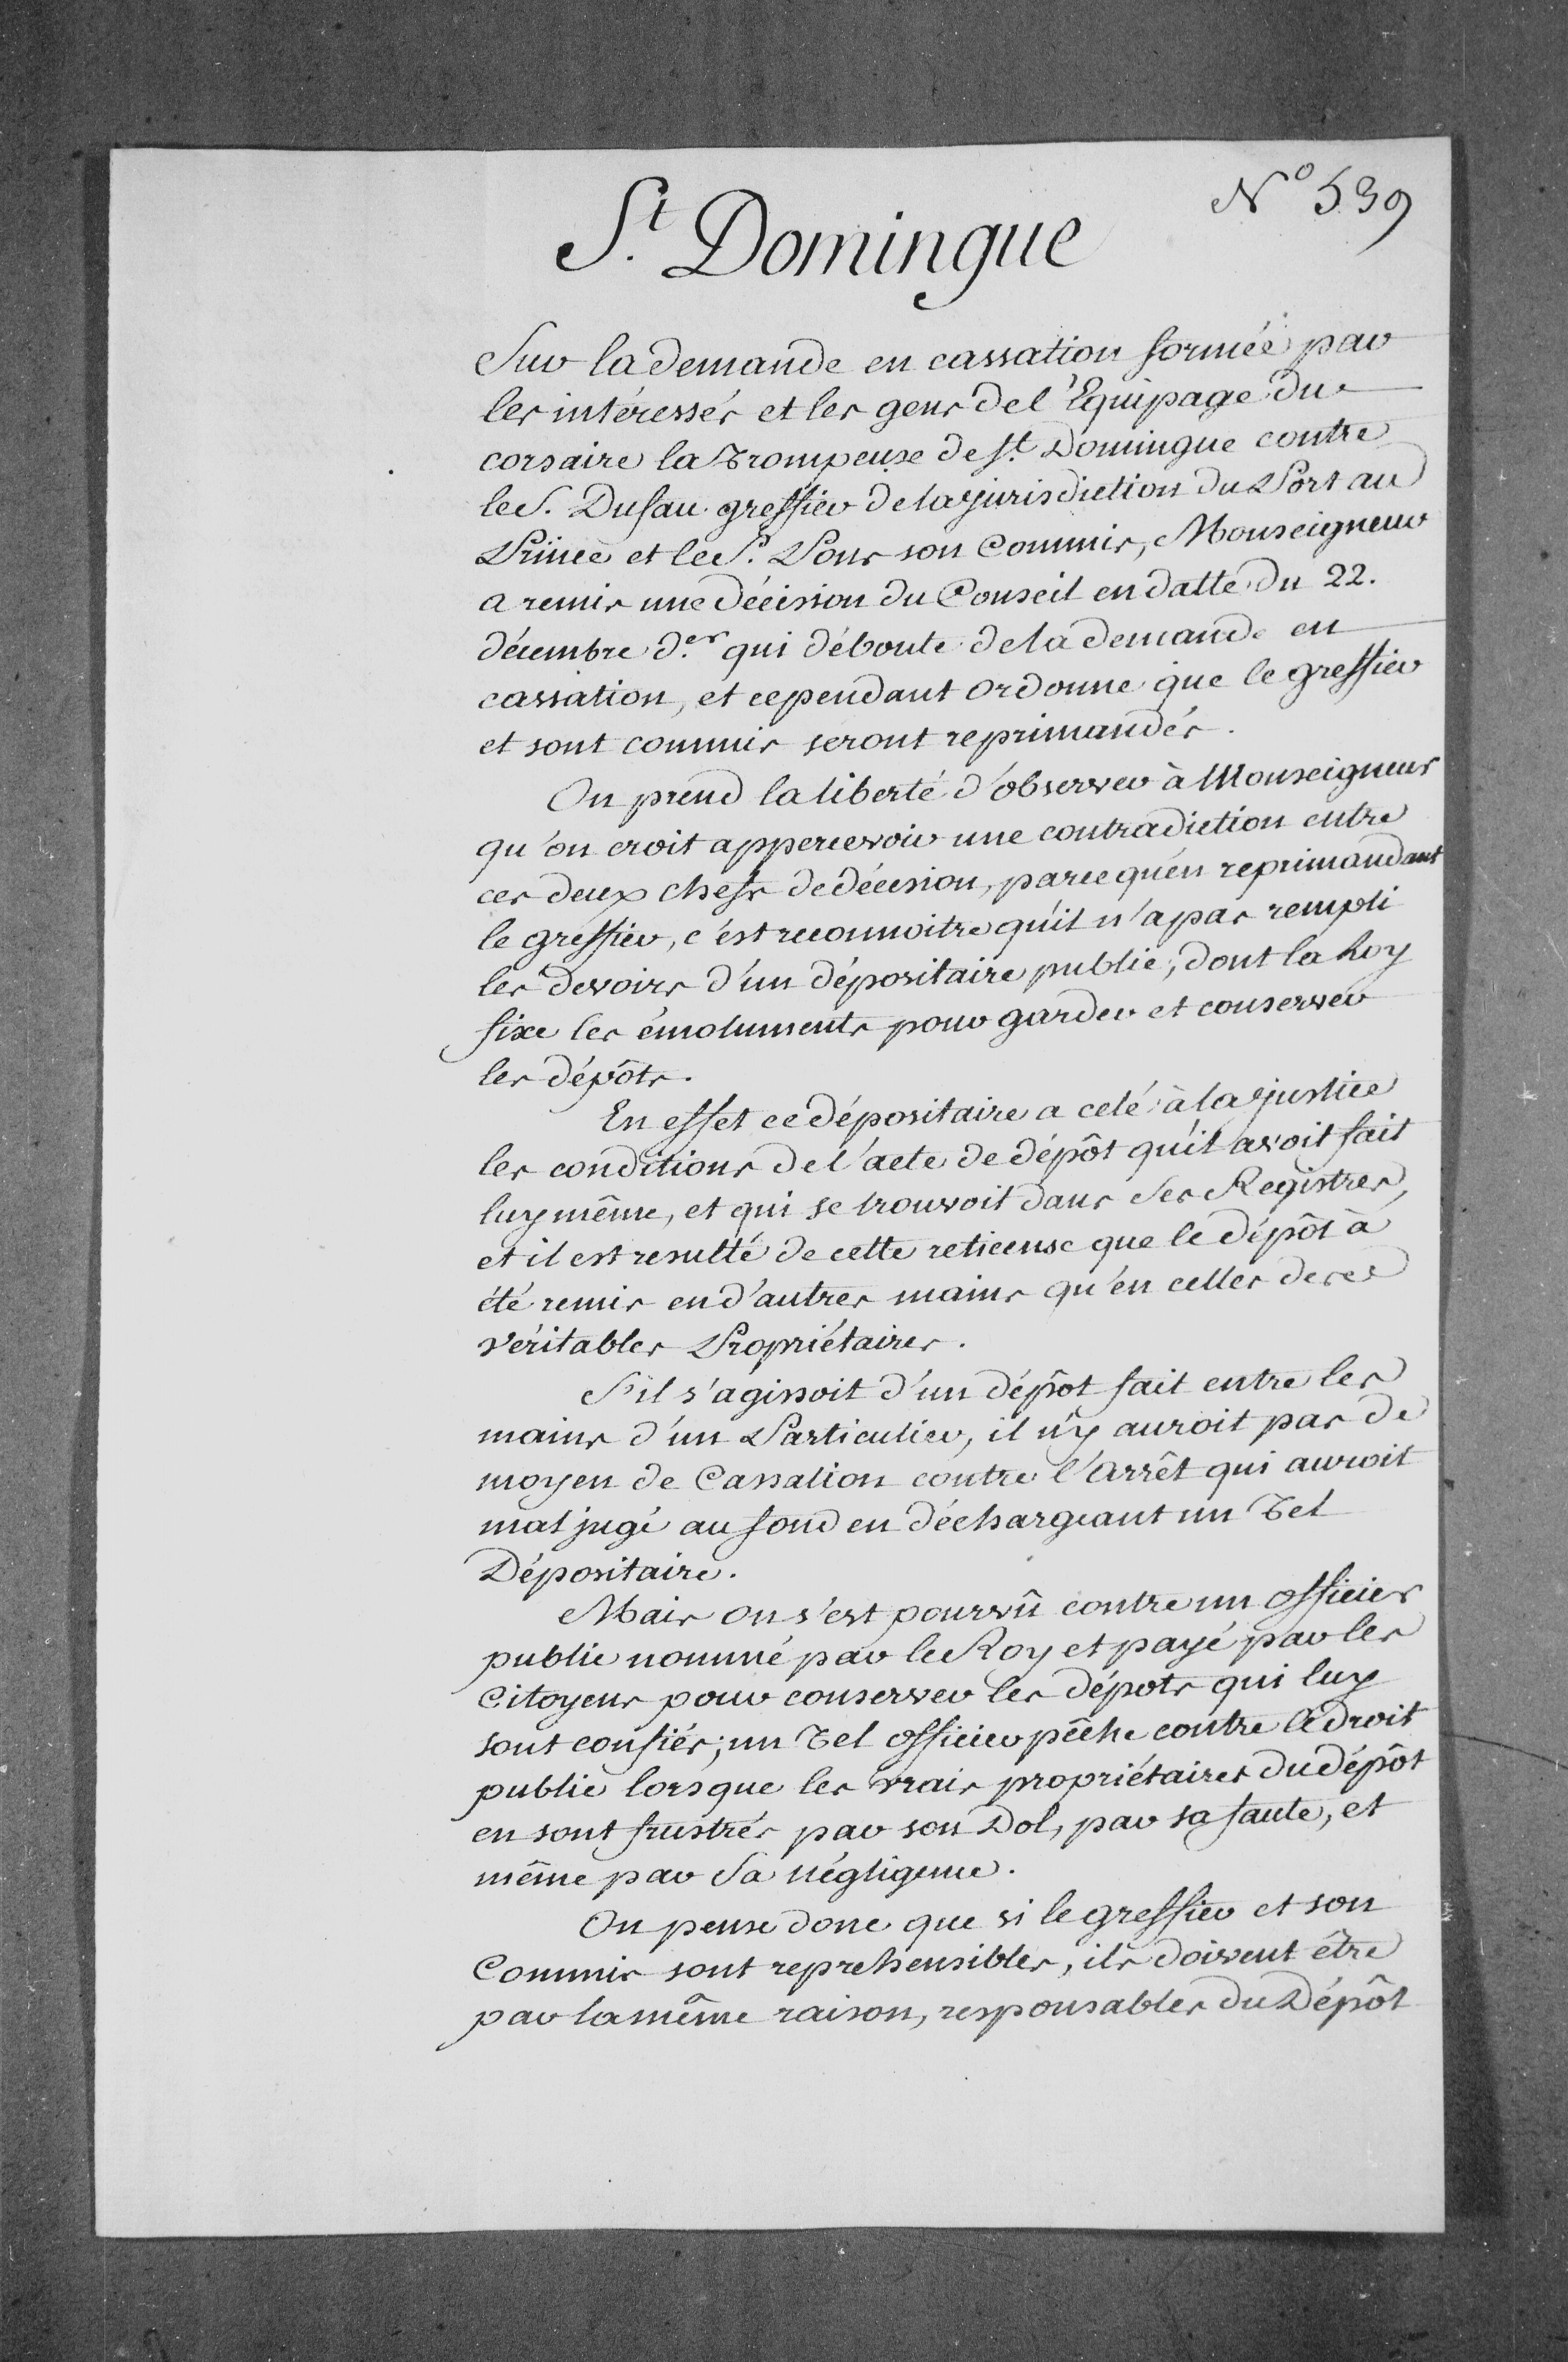 N.º 539
S.t Domingue
Sur la demande en cassation formée par
les intéressés et les gens de l'Equipage du
corsaire la Trompeuse de S.t Domingue contre
le S. Dufau greffier de la jurisdiction du Port au
Prince et le S. Pons son Commis, Monseigneur
a remis une décision du Conseil en datte du 22.
décembre d.er qui déboute de la demande en
cassation, et cependant ordonne que le greffier
et sont commis seront reprimandés.
On prend la liberté d'observer à Monseigneur
qu'on croit appercevoir une contradiction entre
ces deux chefs de décision, parce qu'en reprimandant
le greffier, c'est reconnoitre qu'il n'a pas rempli
les devoirs d'un dépositaire public, dont la Loy
fixe les émoluments pour garder et conserver
les dépôts.
En effet ce dépositaire a celé à la justice
les conditions de l'acte de dépôt qu'il avoit fait
luy même, et qui se trouvoit dans ses Registres,
et il est resulté de cette reticense que le dépôt à
été remis en d'autres mains qu'en celles de ses
véritables Propriétaires.
S'il s'agissoit d'un dépôt fait entre les
mains d'un Particulier, il n'y auroit pas de
moyen de Cassation contre l'Arrêt qui auroit
mal jugé au fond en déchargeant un Tel
Dépositaire.
Mais on s'est pourvû contre un officier
public nommé par le Roy et payé par les
Citoyens pour conserver les dépots qui luy
sont confiés; un Tel officier pêche contre le droit
public lorsque les vrais propriétaires du dépôt
en sont frustrés par son Dol, par sa faute, et
même par sa négligence.
On pense donc que si le greffier et son
Commis sont reprehensibles, ils doivent être
par la même raison, responsables du Dépôt